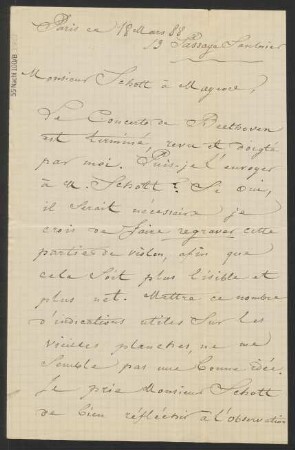 Paris ce 18 Mars 88
13 Passage Saulnier
Monsieur Schott à Mayence,
Le Concerto de Beethoven
est terminé, revu et doigté
par moi. Puis-je l'envoyer
à M. Schott? Si oui,
il serait nécessaire je
crois de faire regraver cette
partie de violon, afin que
cela soit plus lisible et
plus net. Mettre ce nombre
d'indications utiles sur les
vieilles planches, ne me
semble pas une bonne idée.
Je prie Monsieur Schott
de bien réfléchir à l'observation